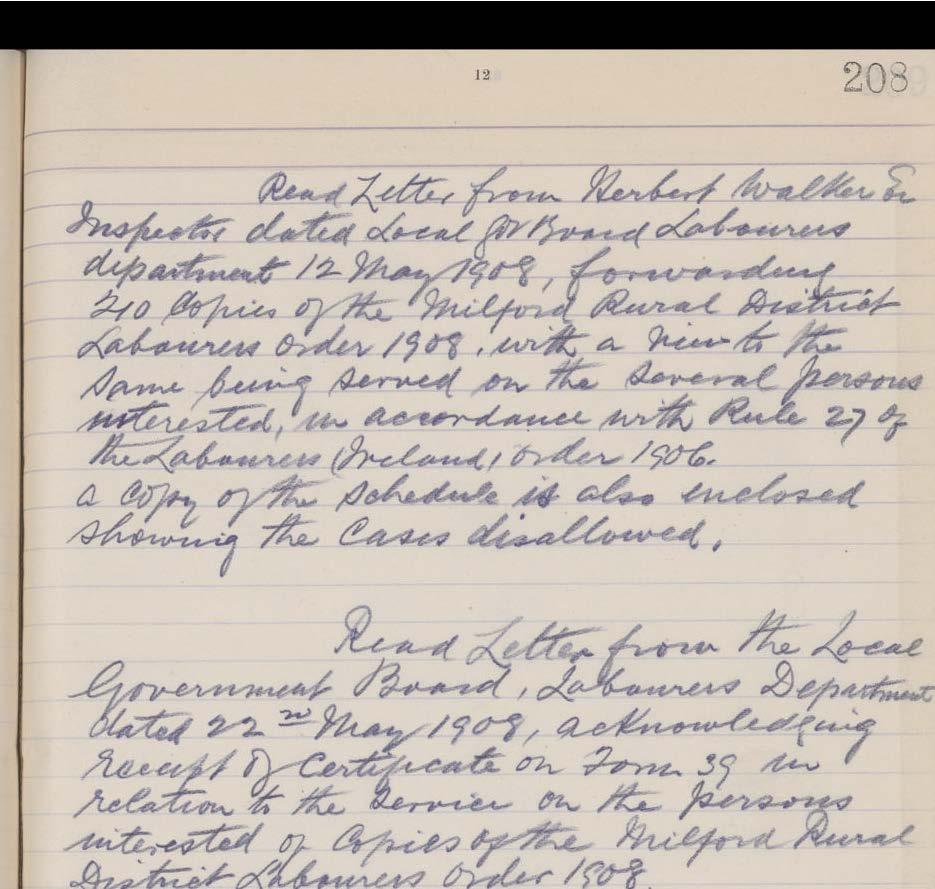 12
208
Read Letter from Herbert Walker
Inspector dated Local Gov Board Labourers
department 12 May 1908, forwarding
210 Copies of the Milford Rural District
Labourers Order 1908, with a view to the
same being served on the several persons
interested, in accordance with Rule 27 of
the Labourers (Ireland) Order 1906.
a copy of the schedule is also enclosed
showing the Cases disallowed.
Read Letter from the Local
Government Board, Labourers Department
dated 22nd May 1908, acknowledging
receipt of Certificate on Form 39 in
relation to the service on the persons
interested of Copies of the Milford Rural
District Labourers Order 1908.